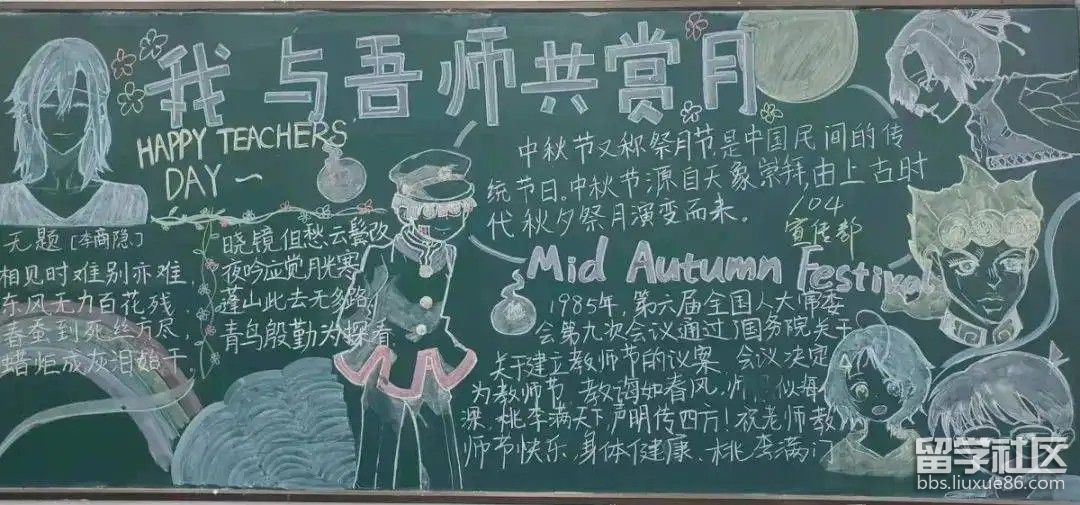 我与吾师共赏月
HAPPY TEACHERS
DAY ~
无题 [李商隐]
相见时难别亦难,
东风无力百花残.
春蚕到死丝方尽,
蜡炬成灰泪始干.
晓镜但愁云鬓改
夜吟应觉月光寒
蓬山此去无多路
青鸟殷勤为探看
中秋节又称祭月节,是中国民间的传
统节日。中秋节源自天象崇拜,由上古时
代秋夕祭月演变而来。
104
宣传部
Mid Autumn Festival
1985年,第六届全国人大常委
会第九次会议通过了国务院关于
关于建立教师节的议案,会议决定
为教师节,教诲如春风,师 似海
深,桃李满天下,声明传四方!祝老师教
师节快乐,身体健康、桃李满门
留学社区
bbs.liuxue86.com